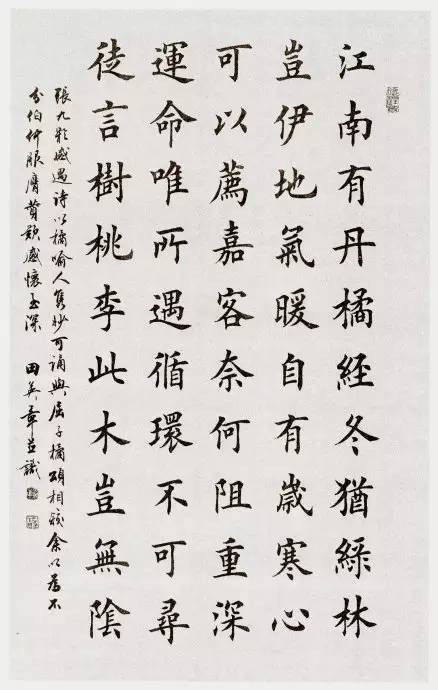 江南有丹橘經冬猶綠林
豈伊地氣暖自有歲寒心
可以薦嘉客奈何阻重深
運命唯所遇循環不可尋
徒言樹桃李此木豈無陰
張九齡感遇詩以橘喻人隽妙可誦與屈子橘頌相較余以為不
分伯仲服膺贊歎感懷至深 田英章並識